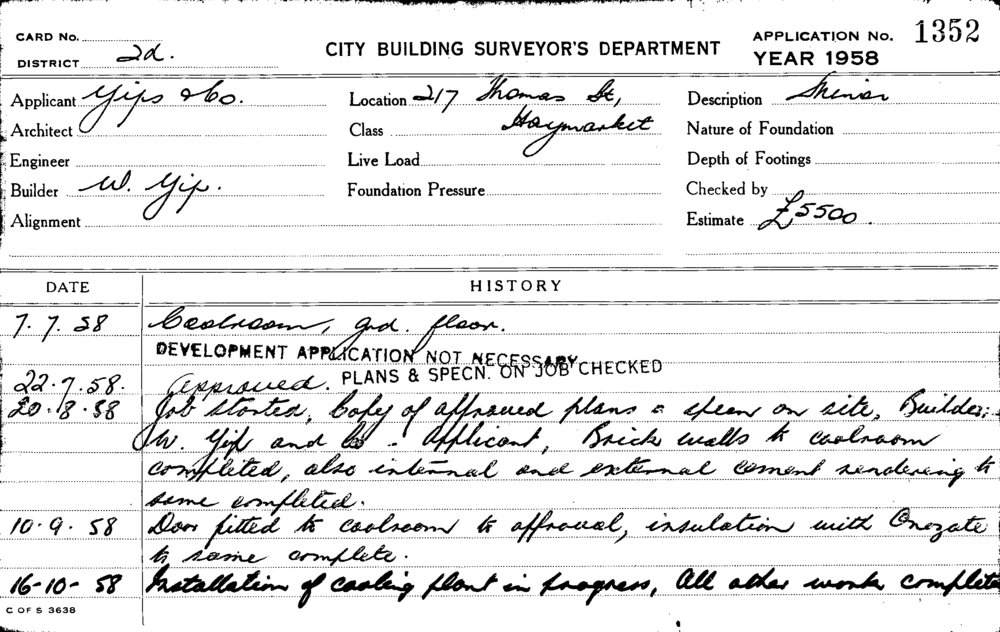 CARD No.
DISTRICT 2d.
CITY BUILDING SURVEYOR'S DEPARTMENT
APPLICATION No. 1352
YEAR 1958
Applicant Yips & Co.
Location 217 Thomas St,
Description Minor
Architect
Class Haymarket
Nature of Foundation
Engineer
Live Load
Depth of Footings
Builder W. Yip.
Foundation Pressure
Checked by
Alignment
Estimate £5500.
DATE HISTORY
7.7.58 Coolroom, grd. floor.
DEVELOPMENT APPLICATION NOT NECESSARY
PLANS & SPECN. ON JOB CHECKED
22.7.58. Approved.
20.8.58 Job started, Copy of approved plans & specn on site, Builder:-
W. Yip and Co - Applicant, Brick walls to coolroom
completed, also internal and external cement rendering to
same completed.
10.9.58 Door fitted to coolroom to approval, insulation with Onozate
to same complete.
16-10-58 Installation of cooling plant in progress, All other work complete
C OF S 3638